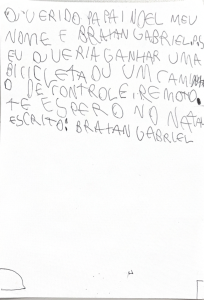 QUERIDO PAPAI NOEL MEU
NOME E BRAIAN GABRIEL AS
EU QUERIA GANHAR UMA
BICICLETA OU UM CAMINHA
O DE CONTROLE, REMOTO.
TE ESPERO NO NATA
ESCRITO: BRAIAN GABRIEL